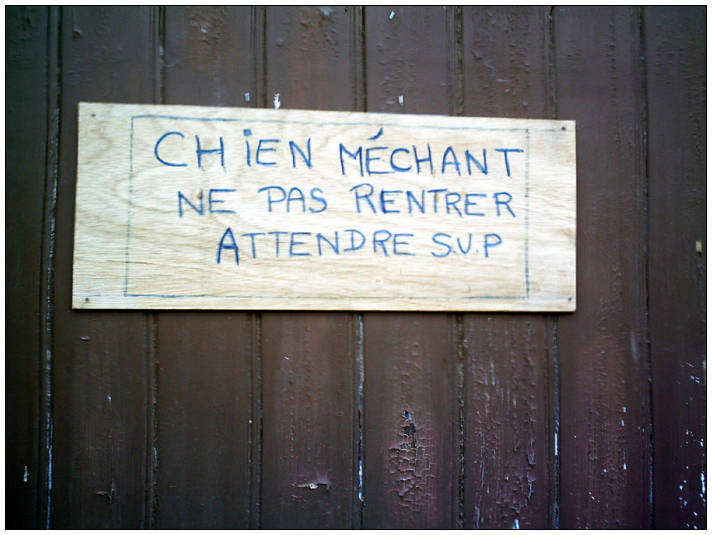 CHiEN MÉCHANT
NE PAS RENTRER
ATTENDRE S.V.P